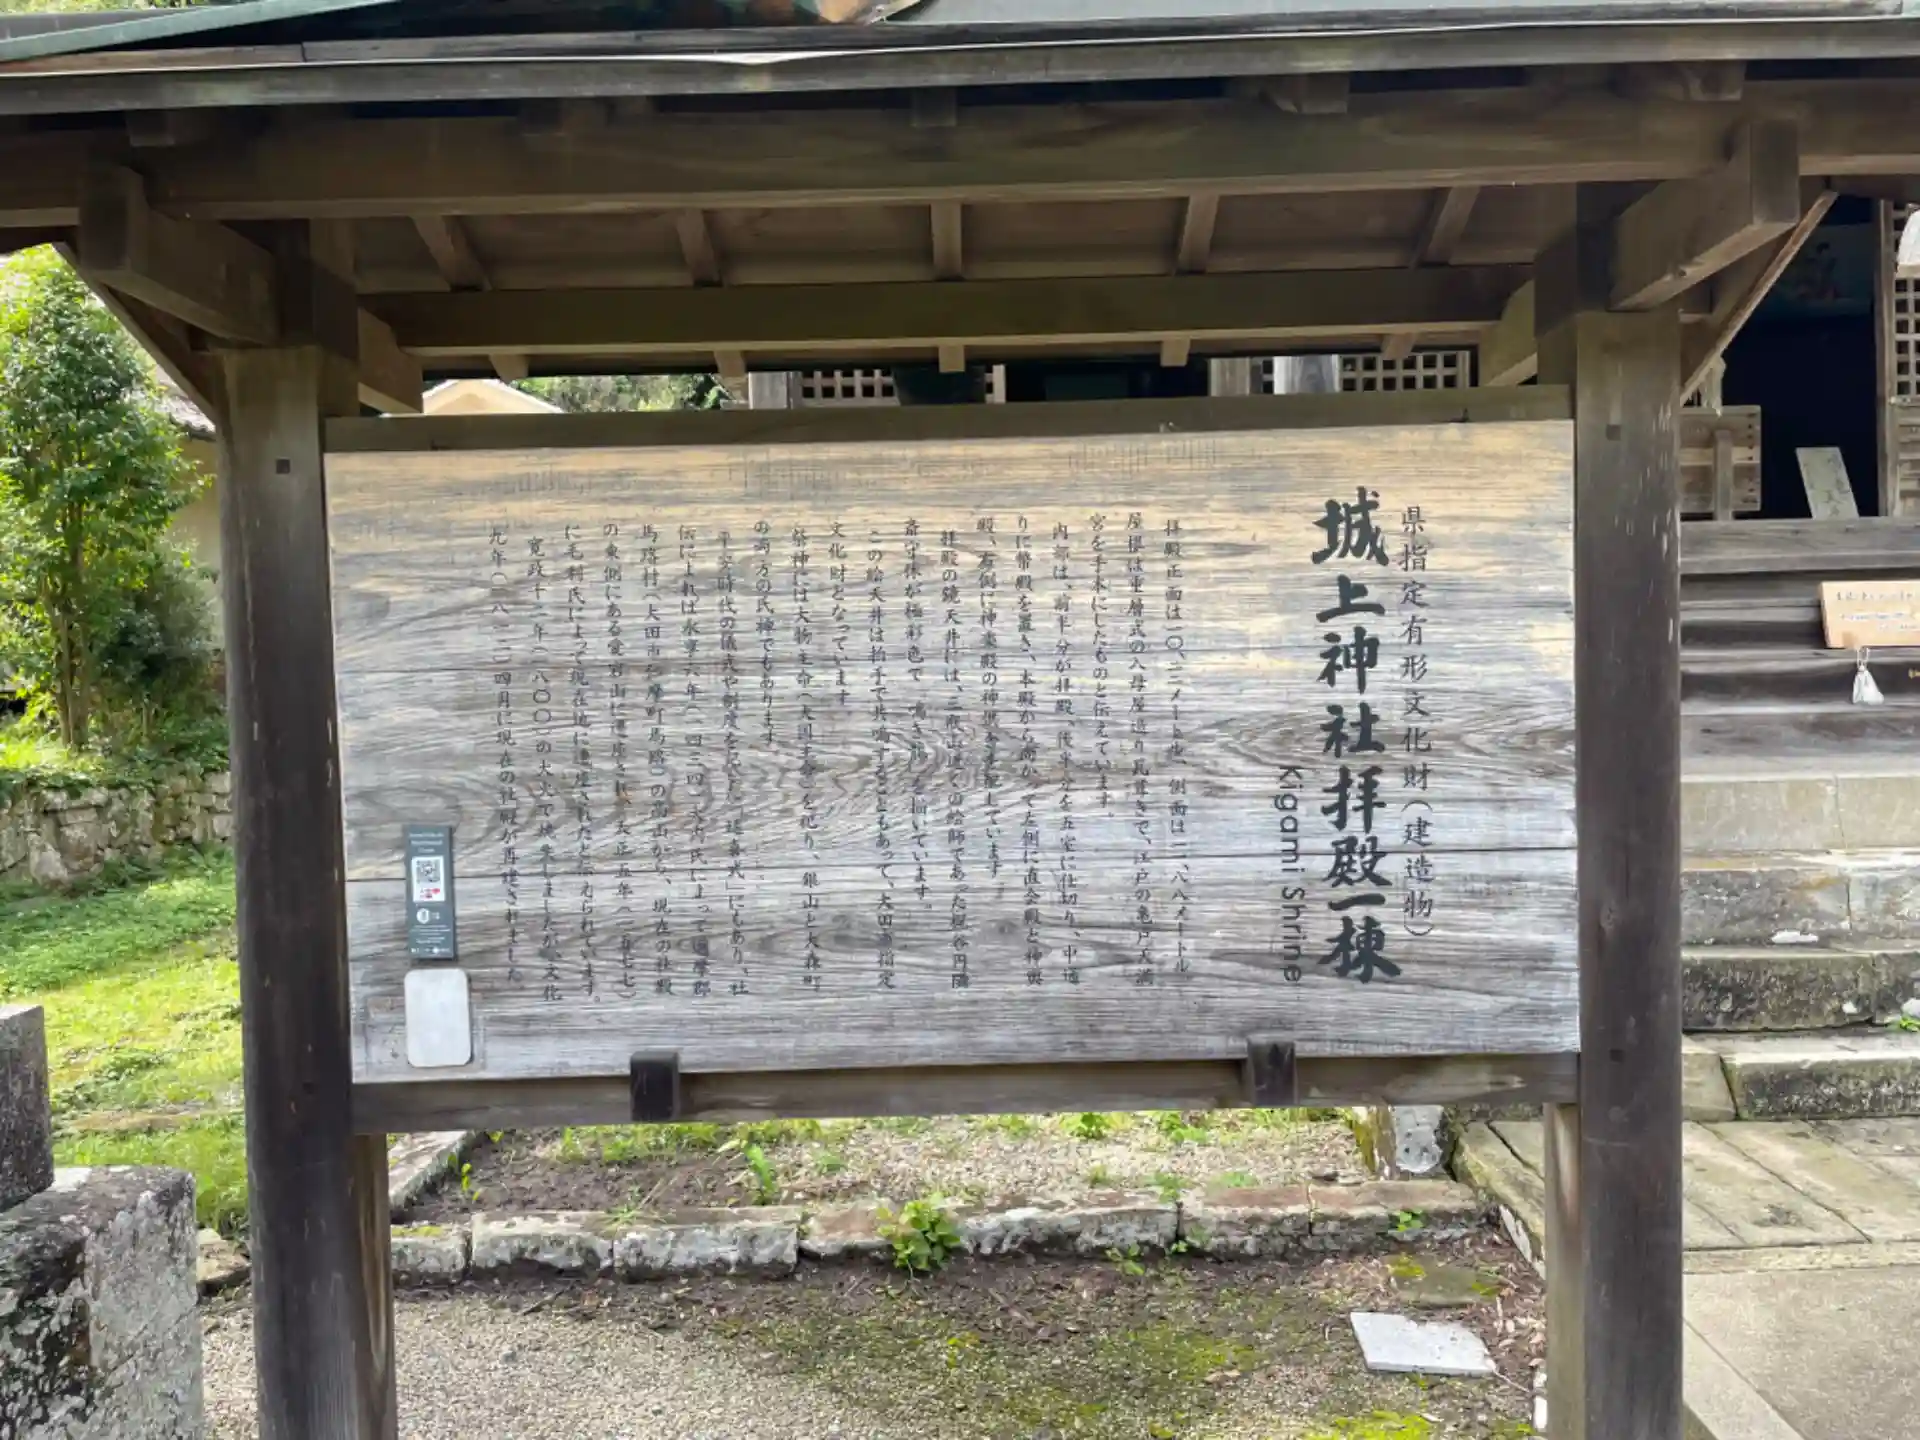 県指定有形文化財（建造物）
城上神社拝殿一棟
Kigami Shrine
拝殿正面は一〇、三二メートル、側面は一二、八八メートル
屋根は重層式の入母屋造り瓦葺きで、江戸の亀戸天満
宮を手本にしたものと伝えています。
内部は、前半分が拝殿、後半分を五室に仕切り、中通
りに幣殿を置き、本殿から向かって左側に直会殿と神輿
殿、右側に神楽殿の神饌を支配しています
拝殿の鏡天井には、三瓶山麓の絵師であった梶谷円隣
斎守休が極彩色で「鳴き龍」を描いています。
この絵天井は拍手で共鳴することもあって、大田市指定
文化財となっています
祭神には大物主命（大国主命）を祀り、銀山と大森町
の両方の氏神でもあります
平安時代の儀式や制度を記した「延喜式」にもあり、社
伝によれば永享六年（一四三四）大内氏によって邇摩郡
馬路村（大田市仁摩町馬路）の高山から、現在の社殿
の東側にある愛宕山に遷座され、天正五年（一五七七）
に毛利氏によって現在地に遷座されたと伝えられています。
寛政十二年（一八〇〇）の大火で焼失しましたが、文化
九年（一八一二）四月に現在の社殿が再建されました